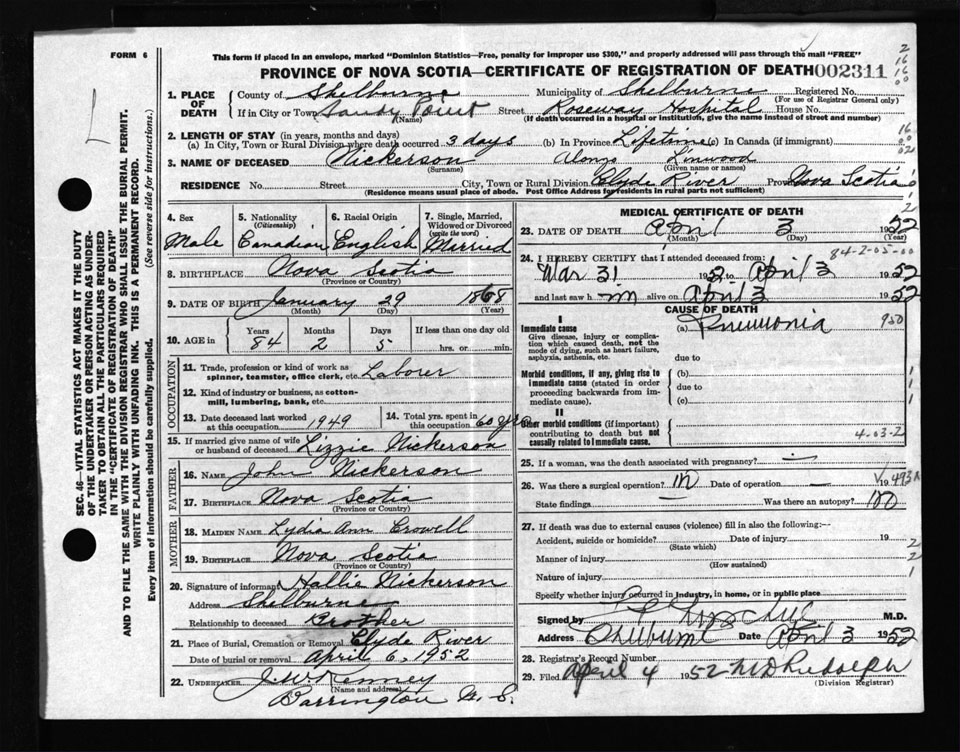 FORM 6
This form if placed in an envelope, marked "Dominion Statistics—Free, penalty for improper use $300," and properly addressed will pass through the mail "FREE"
PROVINCE OF NOVA SCOTIA—CERTIFICATE OF REGISTRATION OF DEATH 002311
2
16
16
00
1. PLACE OF DEATH County of Shelburne Municipality of Shelburne Registered No.
(For use of Registrar General only)
If in City or Town Sandy Point Street Roseway Hospital House No.
(Name) (If death occurred in a hospital or institution, give the name instead of street and number)
2. LENGTH OF STAY (in years, months and days)
(a) In City, Town or Rural Division where death occurred 3 days (b) In Province Lifetime (c) In Canada (if immigrant)
3. NAME OF DECEASED Nickerson Alonzo Linwood
(Surname) (Given name or names)
RESIDENCE No. Street City, Town or Rural Division Clyde River Province Nova Scotia
(Residence means usual place of abode. Post Office Address for residents in rural parts not sufficient)
4. Sex Male
5. Nationality (Citizenship) Canadian
6. Racial Origin English
7. Single, Married, Widowed or Divorced (write the word) Married
8. BIRTHPLACE Nova Scotia
(Province or Country)
9. DATE OF BIRTH January 29 1868
(Month) (Day) (Year)
10. AGE in Years Months Days If less than one day old
84 2 5 hrs. or min.
OCCUPATION
11. Trade, profession or kind of work as spinner, teamster, office clerk, etc. Laborer
12. Kind of industry or business, as cotton-mill, lumbering, bank, etc.
13. Date deceased last worked at this occupation 1949
14. Total yrs. spent in this occupation 60 yrs
15. If married give name of wife or husband of deceased Lizzie Nickerson
FATHER
16. NAME John Nickerson
17. BIRTHPLACE Nova Scotia
(Province or Country)
MOTHER
18. MAIDEN NAME Lydia Ann Crowell
19. BIRTHPLACE Nova Scotia
(Province or Country)
20. Signature of informant Hallie Nickerson
Address Shelburne
Relationship to deceased Brother
21. Place of Burial, Cremation or Removal Clyde River
Date of burial or removal April 6, 1952
22. UNDERTAKER J. W. Kenney
(Name and address)
Barrington N. S.
MEDICAL CERTIFICATE OF DEATH
23. DATE OF DEATH April 3 1952
(Month) (Day) (Year)
84-2-05-00
24. I HEREBY CERTIFY that I attended deceased from:
Mar 31 1952 to April 3 1952
and last saw him alive on April 3 1952
CAUSE OF DEATH
I
Immediate cause (a) Pneumonia 950
Give disease, injury or complication which caused death, not the mode of dying, such as heart failure, asphyxia, asthenia, etc.
due to
Morbid conditions, if any, giving rise to immediate cause (stated in order proceeding backwards from immediate cause).
(b)
due to
(c)
II
Other morbid conditions (if important) contributing to death but not causally related to immediate cause.
4-03-2
25. If a woman, was the death associated with pregnancy? —
26. Was there a surgical operation? no Date of operation — 19
State findings — Was there an autopsy? no
27. If death was due to external causes (violence) fill in also the following:—
Accident, suicide or homicide? Date of injury 19
(State which)
Manner of injury
(How sustained)
Nature of injury
Specify whether injury occurred in Industry, in home, or in public place
Signed by M.D.
Address Date April 3 1952
28. Registrar's Record Number
29. Filed April 4 1952 M D Rudolph
(Division Registrar)
SEC. 46—VITAL STATISTICS ACT MAKES IT THE DUTY OF THE UNDERTAKER OR PERSON ACTING AS UNDERTAKER TO OBTAIN ALL THE PARTICULARS REQUIRED IN THE "CERTIFICATE OF REGISTRATION OF DEATH" AND TO FILE THE SAME WITH THE DIVISION REGISTRAR WHO SHALL ISSUE THE BURIAL PERMIT.
WRITE PLAINLY WITH UNFADING INK. THIS IS A PERMANENT RECORD.
Every item of information should be carefully supplied. (See reverse side for instructions.)